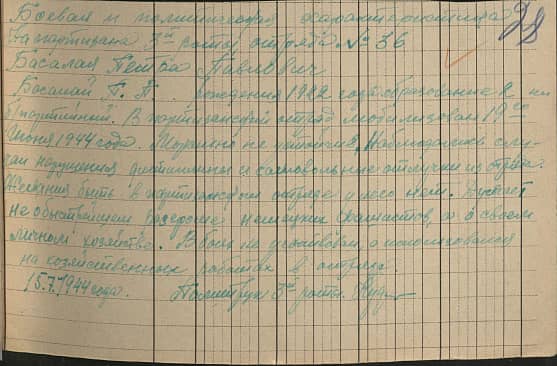 Боевая и политическая характеристика
На партизана 3ей роты отряда № 36
Басалая Петра Павлович
Басалай П. П. рождения 1922 года образование 2 кл
б/партийный. В партизанский отряд мобилизован 19го
июня 1944 года. Морально не устойчив, наблюдались слу-
чаи нарушения дисциплины и самовольные отлучки из отряда.
Желания быть в партизанском отряде у него нет. Думает
не о быстрейшем разгроме немецких фашистов, а о своем
личном хозяйстве. В боях не участвовал, а использовался
на хозяйственных работах в отряде
15.7.1944 года. Политрук 3ей роты